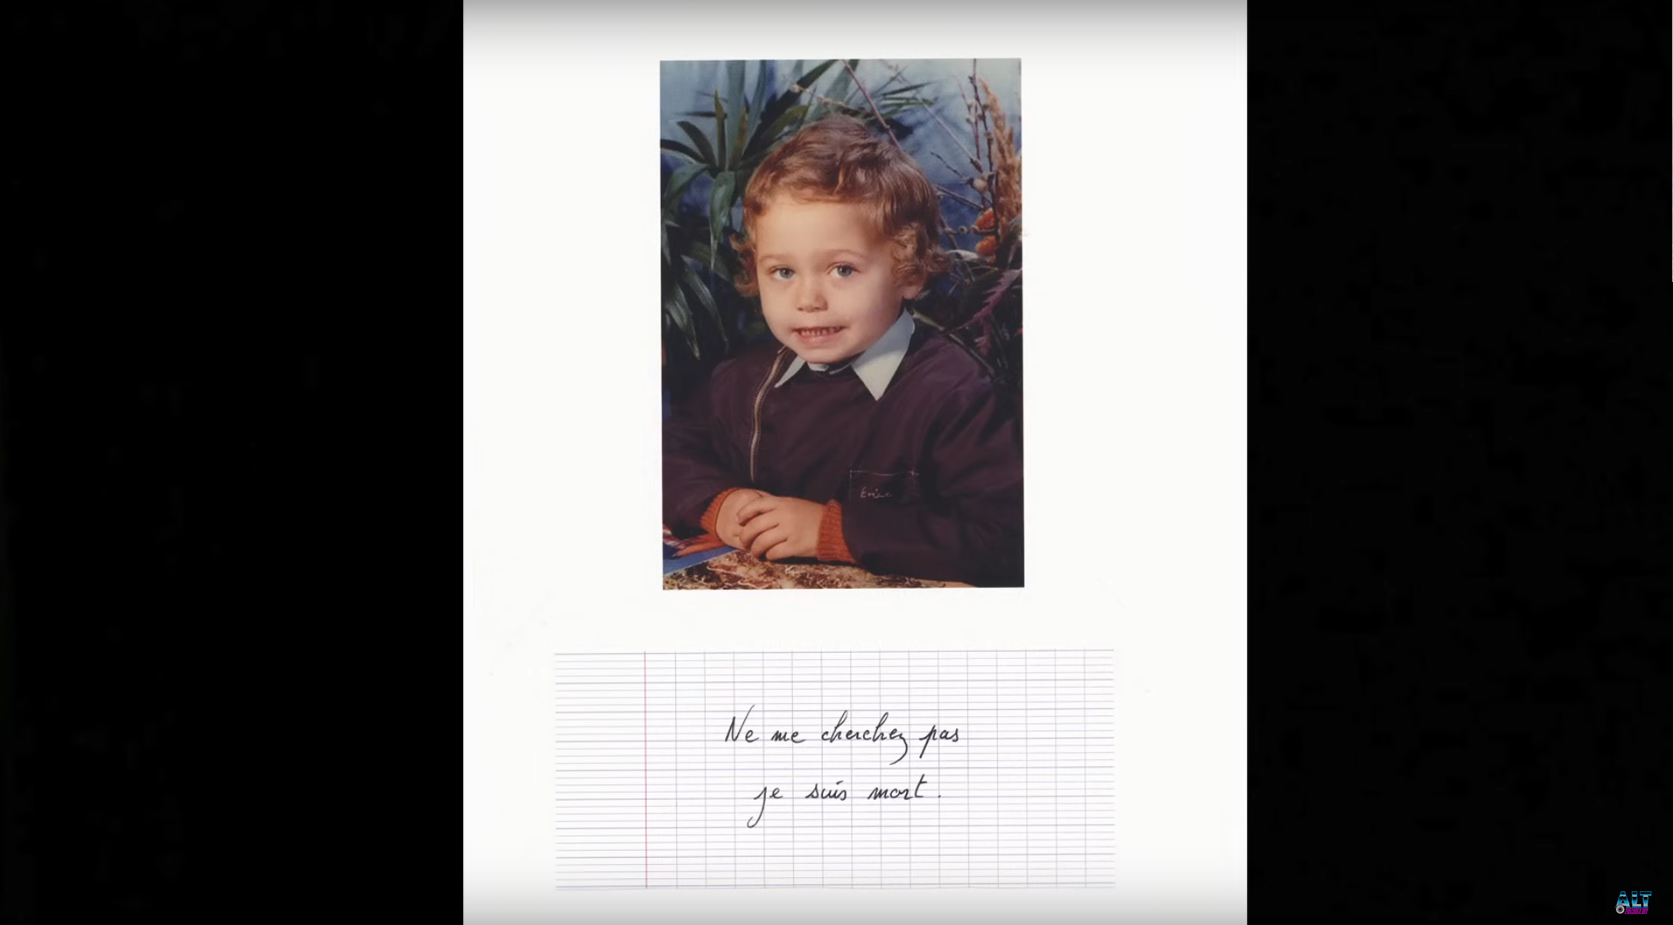 Ne me cherchez pas
je suis mort.
ALT